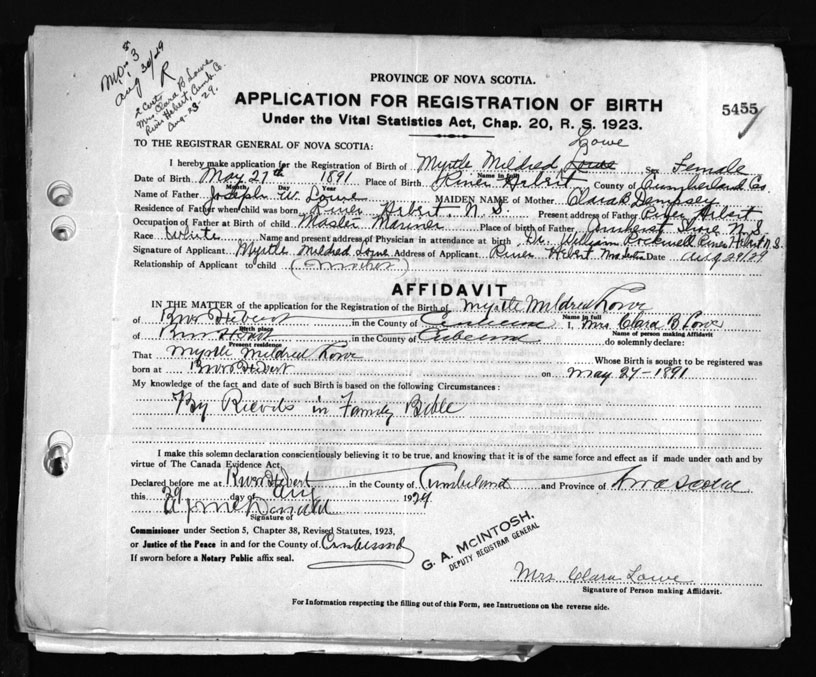 Mo's $3
Aug 30/29
R
2 Certs
Mrs Clara B Lowe
River Hebert, Cumb. Co.
Aug-29-29.
PROVINCE OF NOVA SCOTIA.
APPLICATION FOR REGISTRATION OF BIRTH
5455
Under the Vital Statistics Act, Chap. 20, R. S. 1923.
TO THE REGISTRAR GENERAL OF NOVA SCOTIA:
Lowe
I hereby make application for the Registration of Birth of Myrtle Mildred Lowe Sex Female
Name in full
Date of Birth May 27th 1891 Place of Birth River Hebert County of Cumberland Co.
Month Day Year
Name of Father Joseph W. Lowe MAIDEN NAME of Mother Clara B. Dempsey
Residence of Father when child was born River Hebert, N. S. Present address of Father River Hebert
Occupation of Father at Birth of child Master Mariner Place of birth of Father Amherst Shore N. S.
Race White Name and present address of Physician in attendance at birth Dr. William Rockwell River Hebert N. S.
Signature of Applicant Myrtle Mildred Lowe Address of Applicant River Hebert Date Aug 29/29
Relationship of Applicant to child (Mother)
AFFIDAVIT
IN THE MATTER of the application for the Registration of the Birth of Myrtle Mildred Lowe
Name in full
of River Hebert in the County of Cumberland I, Mrs Clara B Lowe
Birth place Name of person making Affidavit
of River Hebert in the County of Cumberland do solemnly declare:
Present residence
That Myrtle Mildred Lowe Whose Birth is sought to be registered was
born at River Hebert on May 27-1891
My knowledge of the fact and date of such Birth is based on the following Circumstances:
By Records in Family Bible
I make this solemn declaration conscientiously believing it to be true, and knowing that it is of the same force and effect as if made under oath and by
virtue of The Canada Evidence Act.
Declared before me at River Hebert in the County of Cumberland and Province of Nova Scotia
this 29 day of Aug 1929
A J McDonald
Signature of
Commissioner under Section 5, Chapter 38, Revised Statutes, 1923,
or Justice of the Peace in and for the County of Cumberland
If sworn before a Notary Public affix seal.
G. A. McINTOSH,
DEPUTY REGISTRAR GENERAL
Mrs Clara Lowe
Signature of Person making Affidavit.
For Information respecting the filling out of this Form, see Instructions on the reverse side.